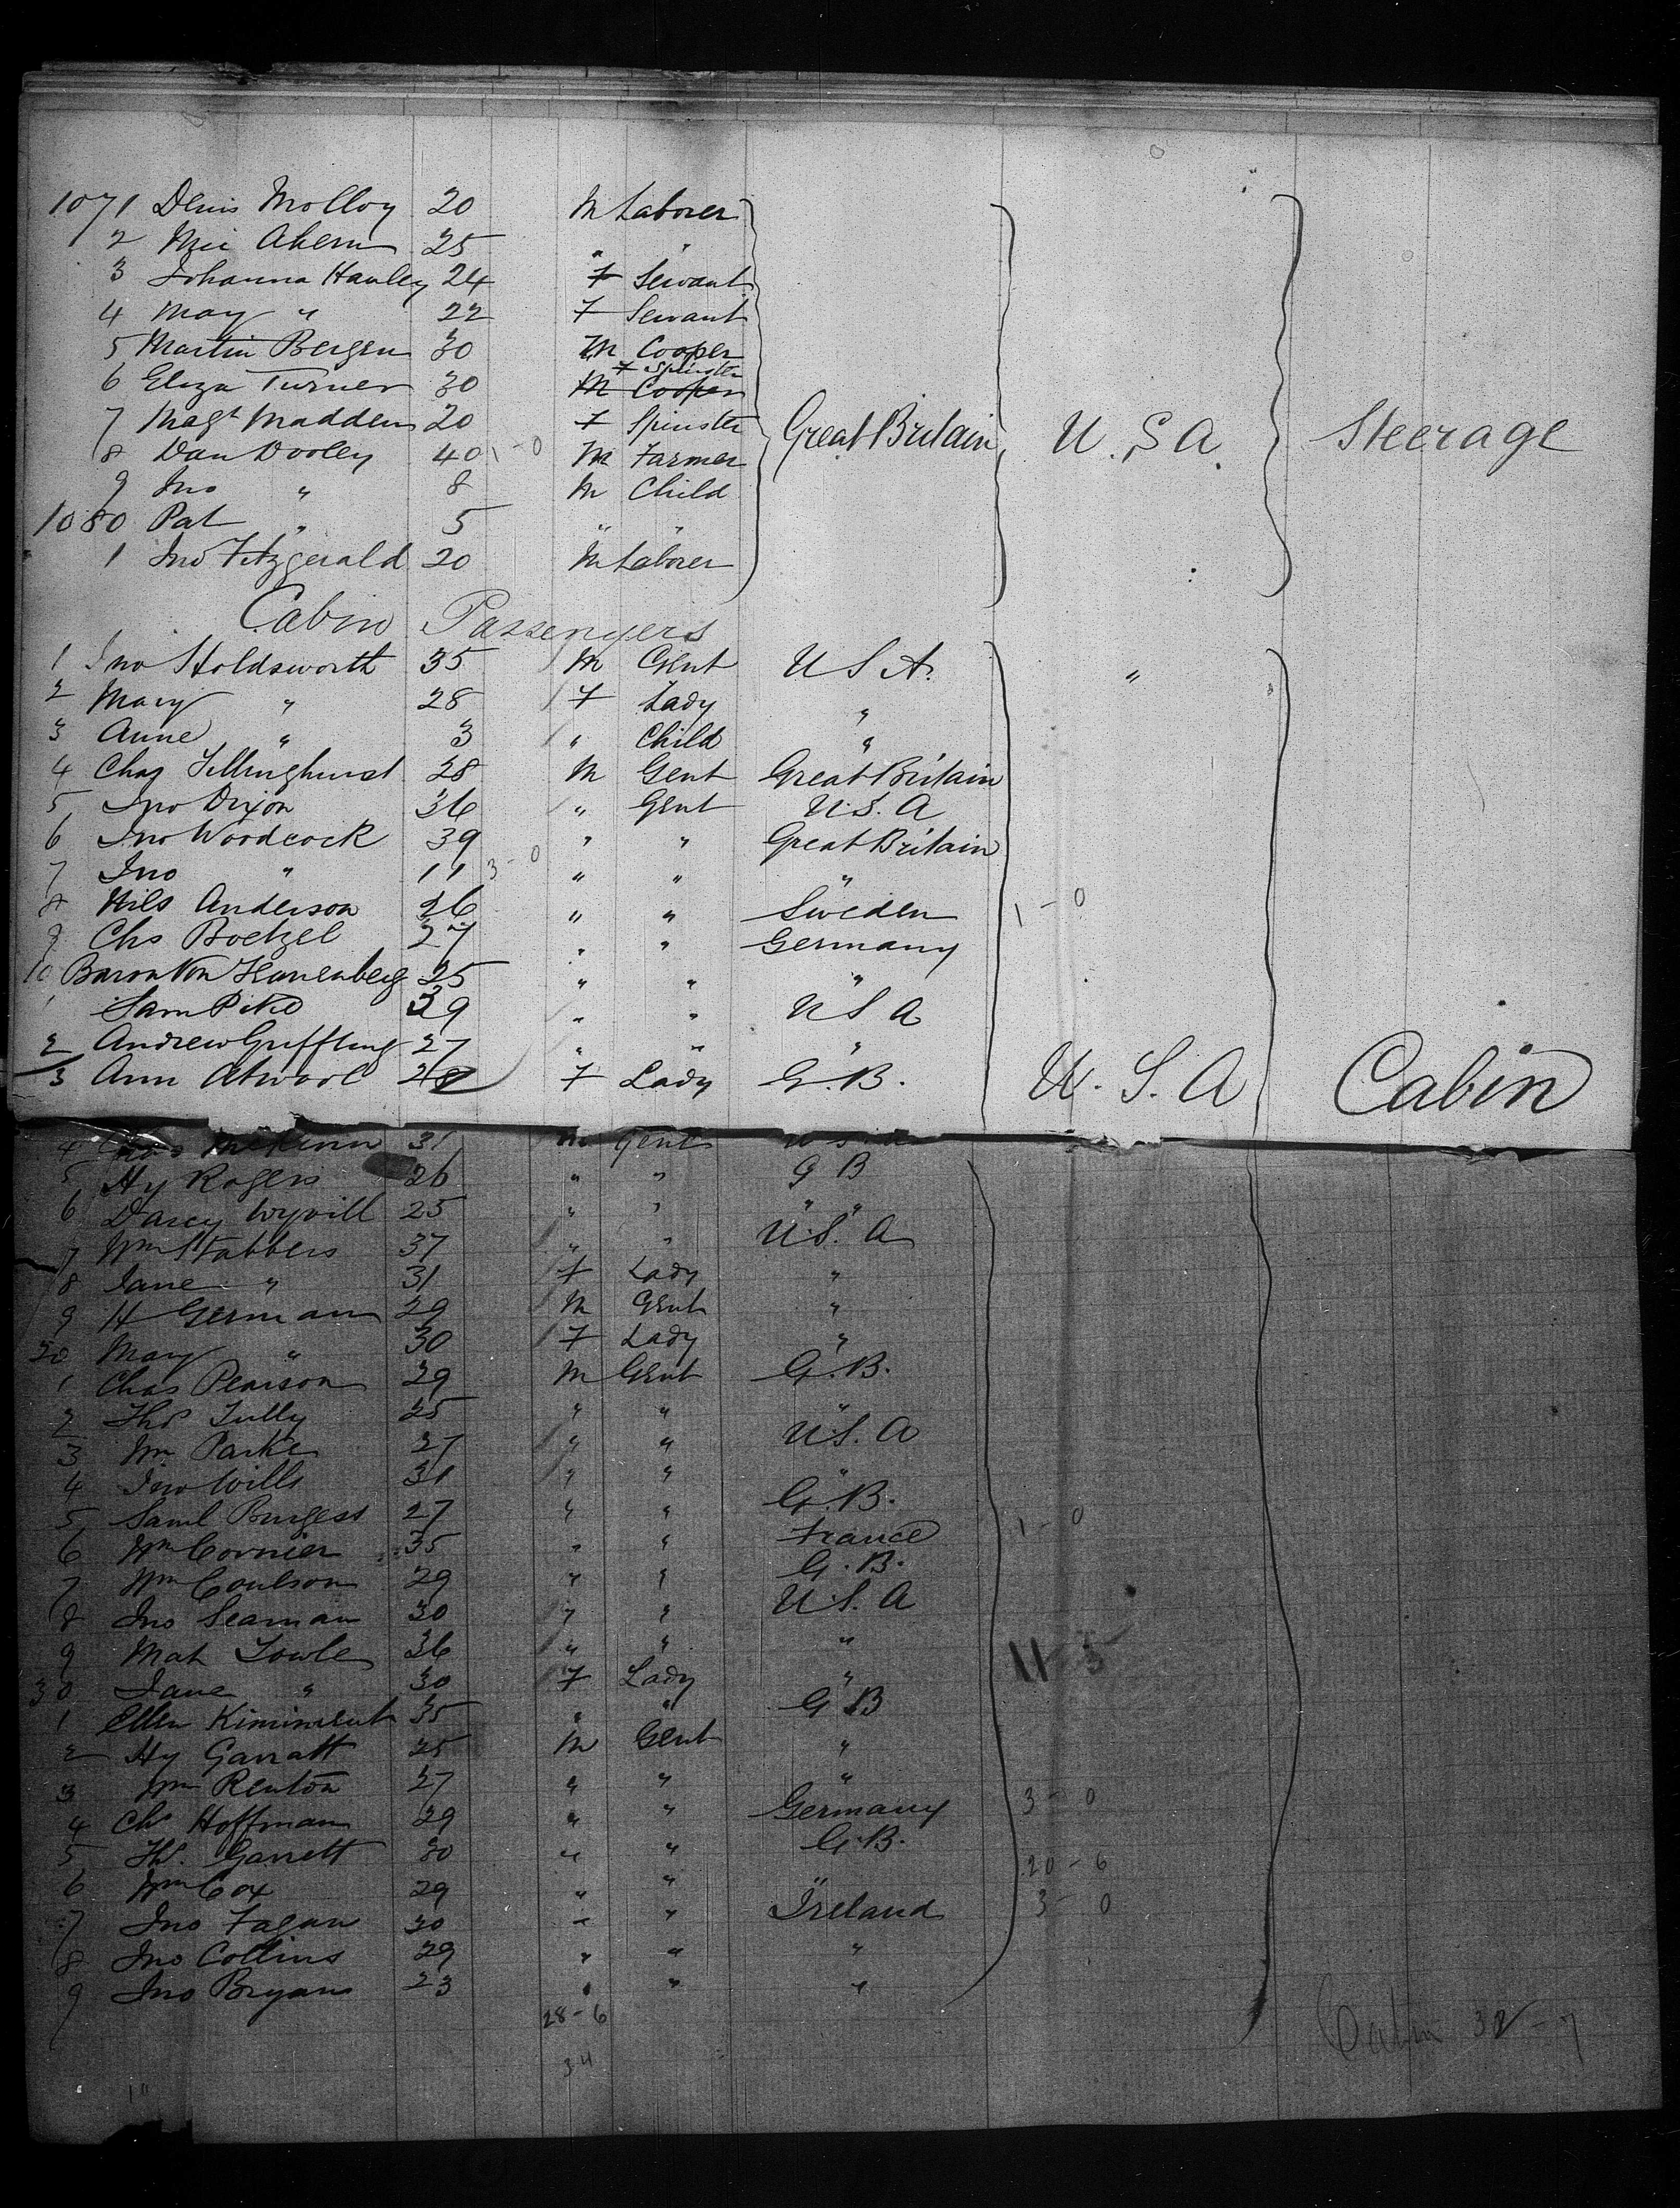 1071 Denis Molloy 20 M Laborer
2 Mic Ahern 25 " "
3 Johanna Hanley 24 F Servant
4 May " 22 F Servant
5 Martin Bergen 30 M Cooper
F Spinster
6 Eliza Turner 30 M Cooper
7 Magt Madden 20 F Spinster
Great Britain U.S.A. Steerage
8 Dan Dooley 40 1-0 M Farmer
9 Jno " 8 M Child
1080 Pat " 5 " "
1 Jno Fitzgerald 20 M Laborer
Cabin Passengers
1 Jno Holdsworth 35 M Gent U S A. "
2 Mary " 28 F Lady "
3 Anne " 3 " Child "
4 Chas Tillinghurst 28 M Gent Great Britain
5 Jno Dixon 36 " Gent U.S.A
6 Jno Woodcock 39 " " Great Britain
7 Jno " 11 3-0 " " "
8 Nils Anderson 26 " " Sweden 1-0
9 Chs Boetzel 27 " " Germany
10 Baron Von 25 " " "
1 Sam Pike 39 " " U S A
2 Andrew Griffling 27 " " "
3 Ann Atwool F Lady G.B. U.S.A Cabin
4 McKinn 31 M Gent U S A
5 Hy Rogers 26 " " G B
6 Darcy Wyvill 25 " " " "
7 Wm Stabbers 37 " " U.S.A
8 Jane " 31 F Lady "
9 H German 29 M Gent "
20 Mary " 30 F Lady "
1 Chas Pearson 29 M Gent G.B.
2 Thos Tully 25 " " "
3 Wm Parke 27 " " U.S.A
4 Jno Wills 31 " " "
5 Saml Burgess 27 " " G.B.
6 Wm Cornier 35 " " France 1-0
7 Wm Coulson 29 " " G.B.
8 Jno Seaman 30 " " U.S.A
9 Mat Towle 36 " " " 11-5
30 Jane " 30 F Lady "
1 Ellen 35 " " G B
2 Hy Garratt 25 M Gent "
3 Wm Renton 27 " " "
4 Chs Hoffman 29 " " Germany 3-0
5 Ths. Garrett 30 " " G.B.
6 Wm Cox 29 " " " 20-6
7 Jno Fagan 30 " " Ireland 3-0
8 Jno Collins 29 " " "
9 Jno Bryans 23 " " "
28-6
34
Cabin